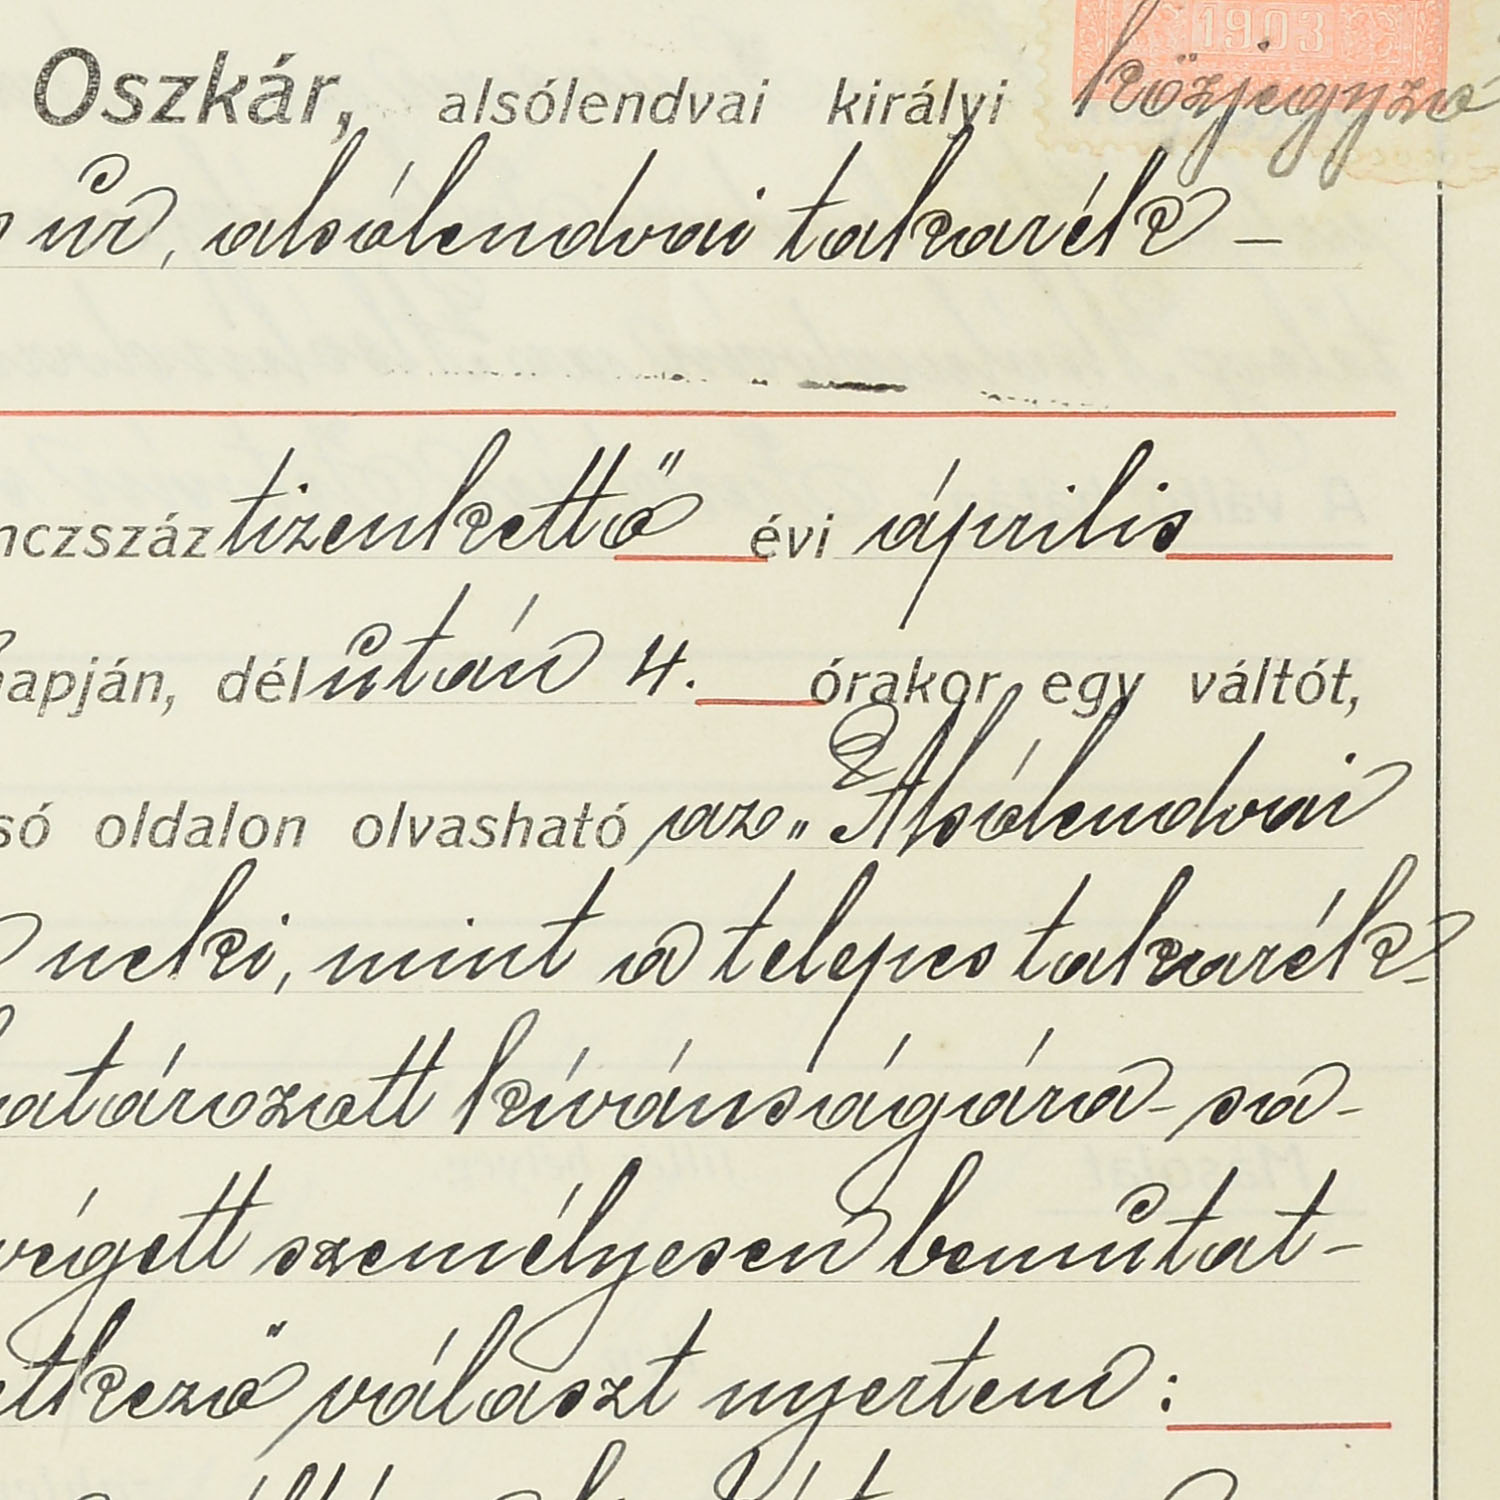 1903
Oszkár, alsólendvai királyi közjegyző
úr, alsólendvai takarék-
nczszáz tizenkettő évi április
napján, délután 4. órakor egy váltót,
só oldalon olvasható az „Alsólendvai
neki, mint a telepes takarék-
határozott kívánságára sa-
végett személyesen bemutat-
etkező választ nyertem: